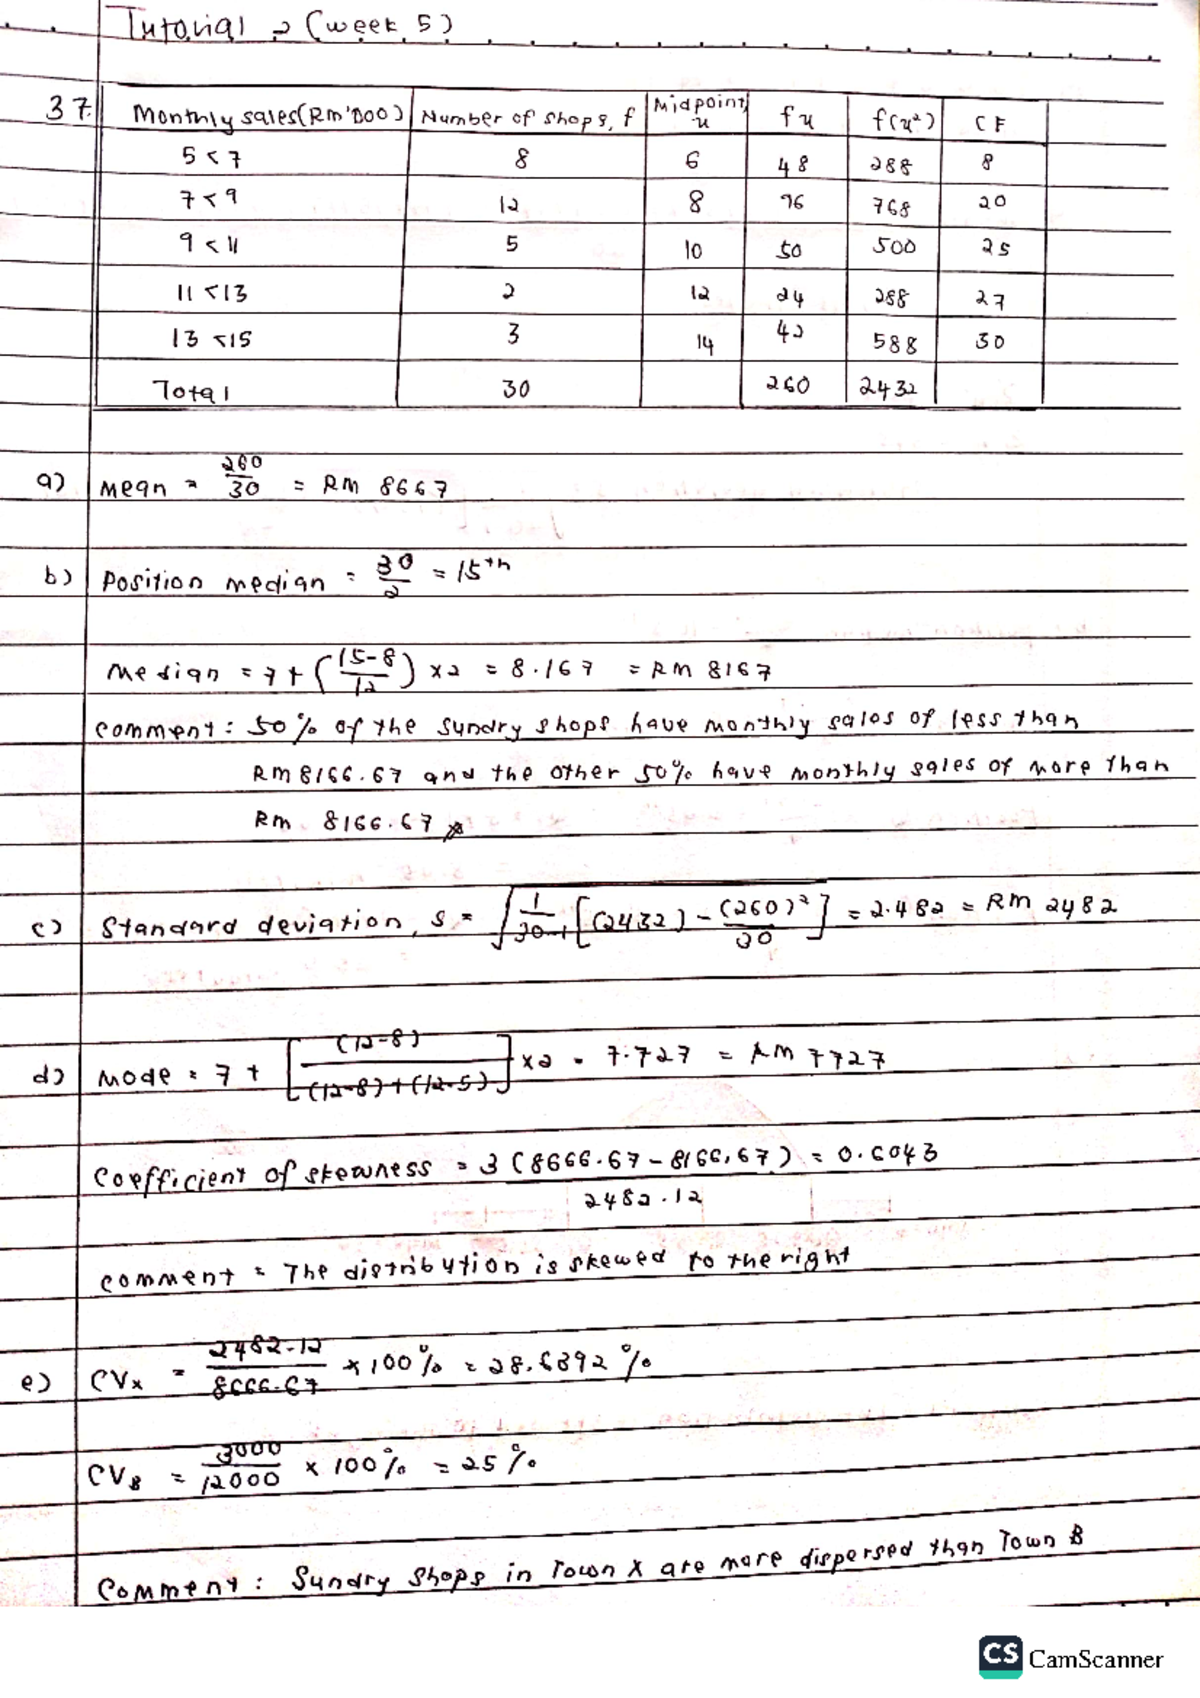 Tutorial 2 (week 5)
37. Monthly sales(RM'000) Number of shops, f Midpoint, x fx f(x²) CF
5 < 7 8 6 48 288 8
7 < 9 12 8 96 768 20
9 < 11 5 10 50 500 25
11 < 13 2 12 24 288 27
13 < 15 3 14 42 588 30
Total 30 260 2432
a) Mean = 260/30 = RM 8667
b) Position median = 30/2 = 15th
Median = 7 + (15-8/12) × 2 = 8.167 = RM 8167
Comment : 50% of the sundry shops have monthly sales of less than
RM 8166.67 and the other 50% have monthly sales of more than
RM 8166.67
c) Standard deviation, s = √1/30-1 [(2432) - (260)²/30] = 2.482 = RM 2482
d) Mode = 7 + [(12-8)/(12-8)+(12-5)] × 2 = 7.727 = RM 7727
Coefficient of skewness = 3 (8666.67 - 8166.67)/2482.12 = 0.6043
Comment = The distribution is skewed to the right
e) CVx = 2482.12/8666.67 × 100% = 28.6392 %
CVB = 3000/12000 × 100% = 25%
Comment : Sundry shops in Town X are more dispersed than Town B
CS CamScanner